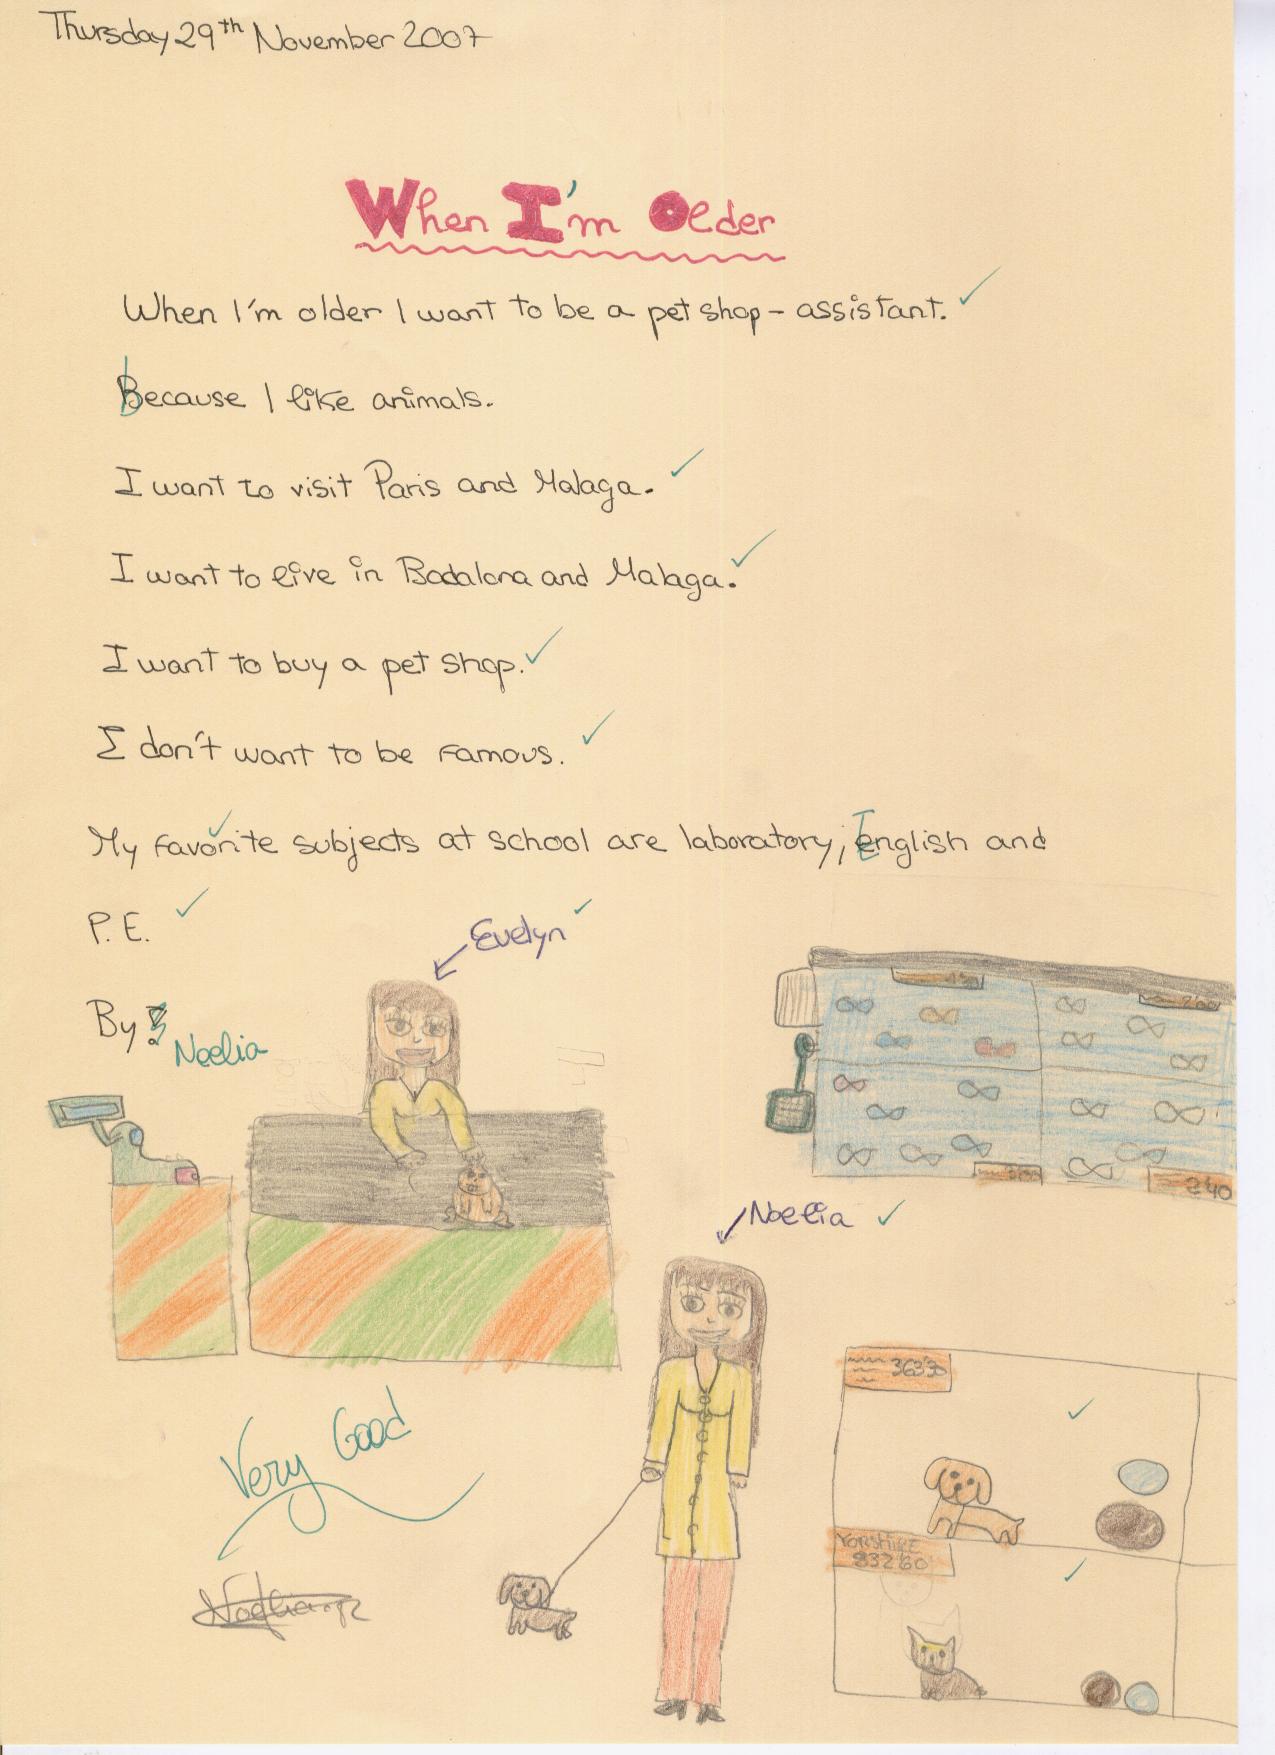 Thursday 29th November 2007
When I'm Older
When I'm older I want to be a pet shop - assistant.
Because I like animals.
I want to visit Paris and Malaga.
I want to live in Badalona and Malaga.
I want to buy a pet shop.
I don't want to be famous.
My favorite subjects at school are laboratory, English and
P.E.
Evelyn
By:
Noelia
2'40
Noelia
363'30
Very Good
YORSHIRE
832'60